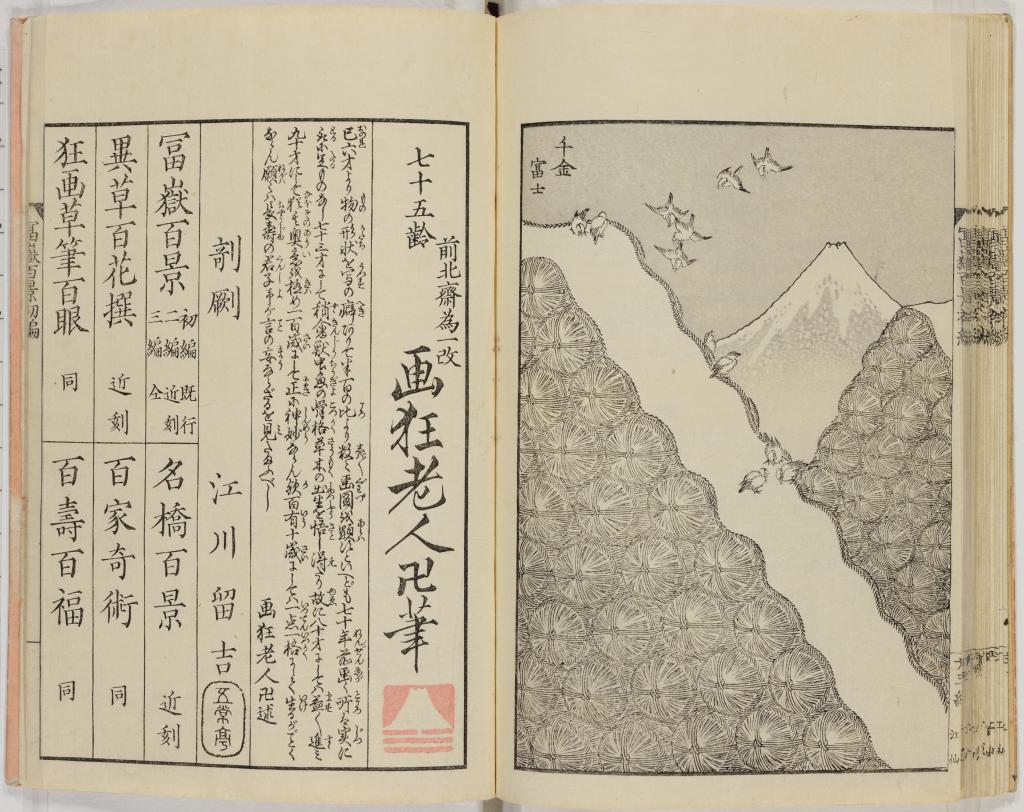 千金
富士
七十五齢
前北斎為一改
画狂老人卍筆
己六才より物の形状を写の癖ありて半百の比より数々画図を顕すといへども七十年前画く所は実に
取に足ものなし七十三才にして稍禽獣虫魚の骨格草木の出生を悟し得たり故に八十才にしては益々進み
九十才にして猶其奥意を極め一百歳にして正に神妙ならん歟百有十歳にしては一点一格にして生るがごとく
ならん願くは長寿の君子予が言の妄ならざるを見たまふべし
画狂老人卍述
剞劂 江川留吉 五常亭
冨嶽百景 初編 既行
二編 近刻
三編 仝
名橋百景 近刻
異草百花撰 近刻
百家奇術 同
狂画草筆百眼 同
百壽百福 同
冨嶽百景初編